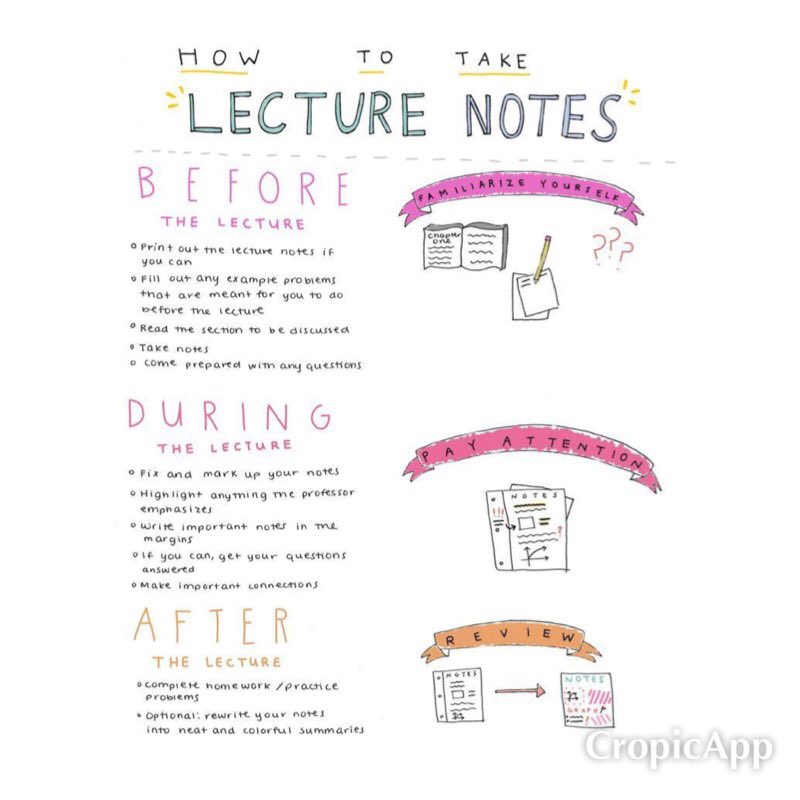 HOW TO TAKE
LECTURE NOTES
BEFORE
THE LECTURE
Print out the lecture notes if
you can
Fill out any example problems
that are meant for you to do
before the lecture
Read the section to be discussed
Take notes
come prepared with any questions
FAMILIARIZE YOURSELF
Chapter
one
???
DURING
THE LECTURE
Fix and mark up your notes
Highlight anything the professor
emphasizes
Write important notes in the
margins
If you can, get your questions
answered
Make important connections
PAY ATTENTION
NOTES
!!!
?
AFTER
THE LECTURE
Complete homework/practice
problems
Optional: rewrite your notes
into neat and colorful summaries
REVIEW
NOTES
NOTES
GRAPH
CropicApp